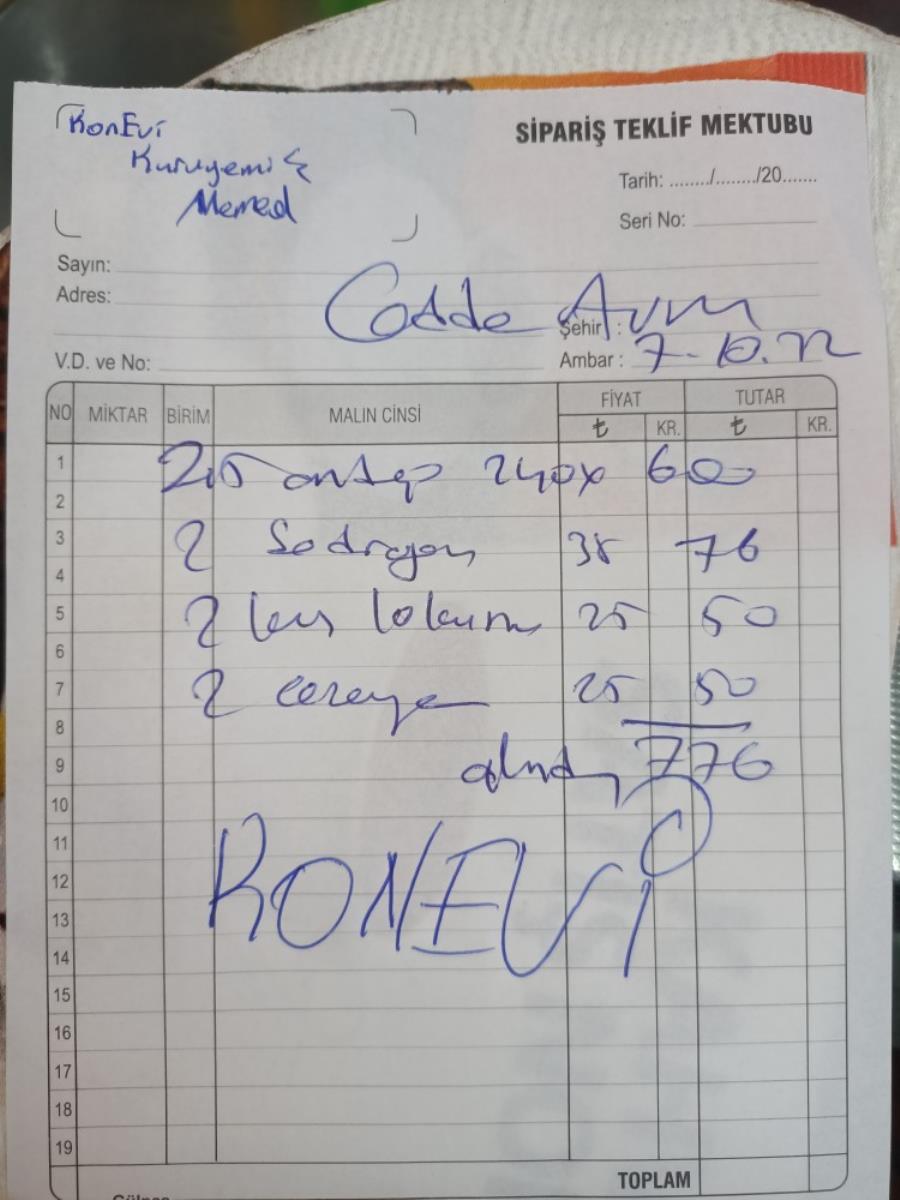 KonEvi
Kuruyemiş
Memed
SİPARİŞ TEKLİF MEKTUBU
Tarih: ......../......../20.......
Seri No:
Sayın:
Adres:
Cadde Avm
Şehir :
V.D. ve No:
Ambar : 7-10.22
NO MİKTAR BİRİM MALIN CİNSİ FİYAT TUTAR
₺ KR. ₺ KR.
1 2,5 antep 240x 600
2
3 2 38 76
4
5 2 kuş lokum 25 50
6
7 2 cezerye 25 50
8
9 alındı 776
10
11
12 KONEVi
13
14
15
16
17
18
19
TOPLAM